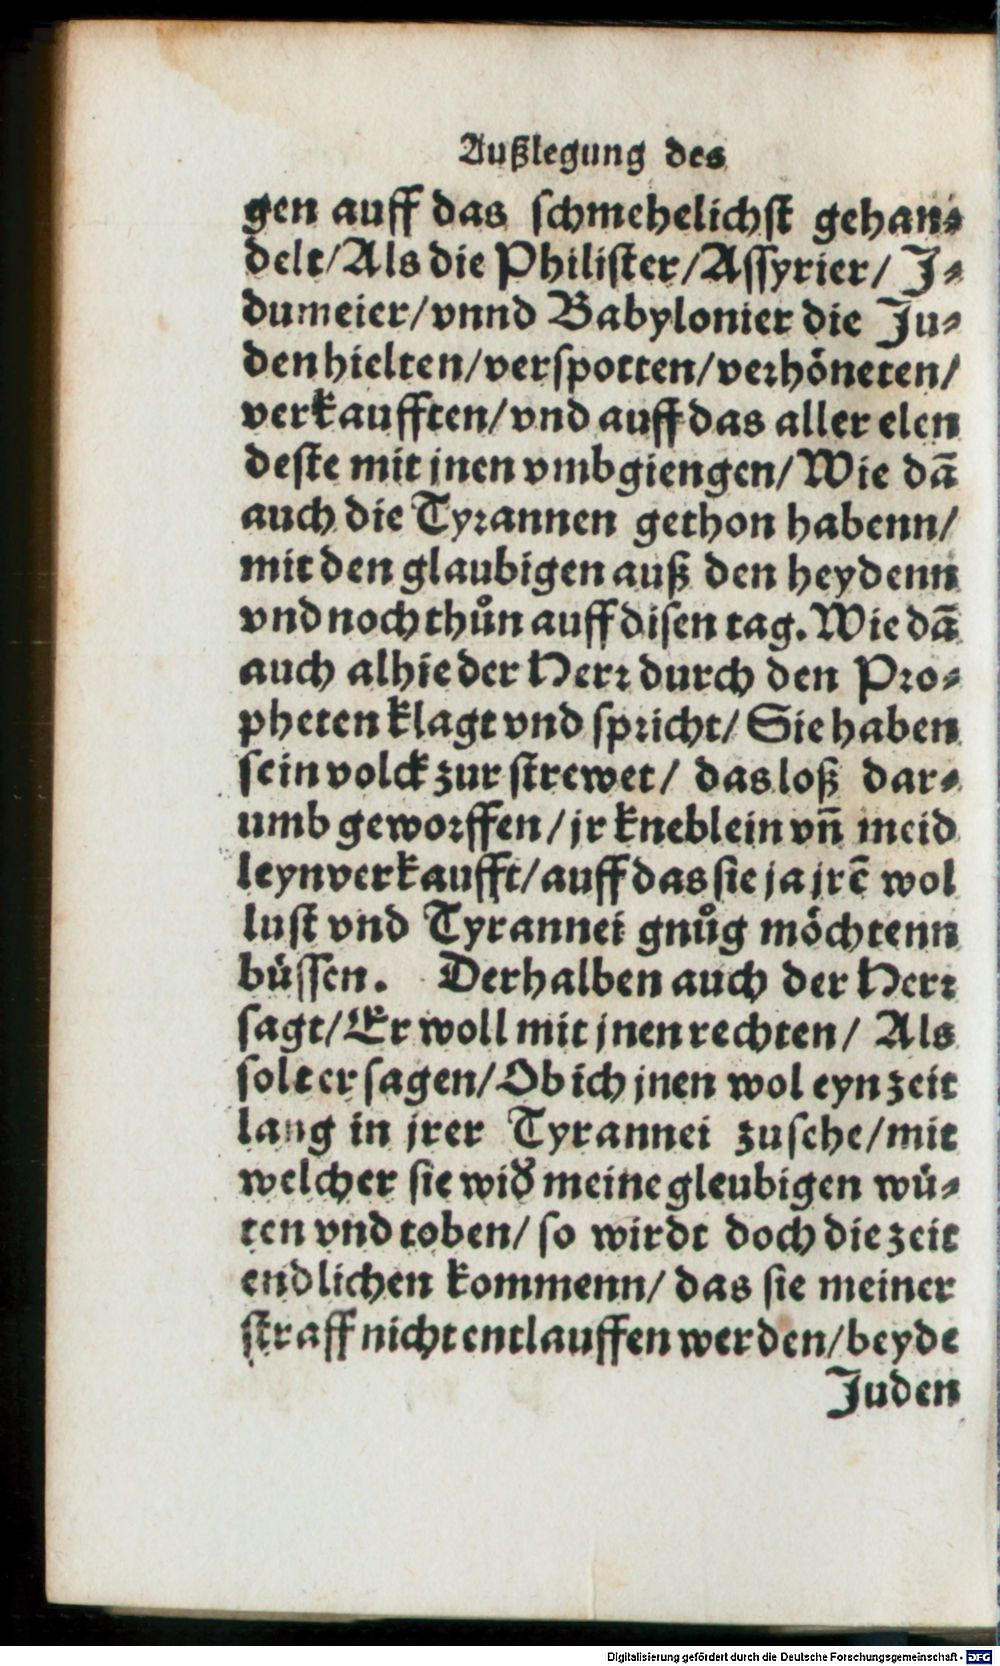 Außlegung des
gen auff das schmehelichst gehan⸗
delt/Als die Philister/Assyrier/ J⸗
dumeier/vnnd Babylonier die Ju⸗
den hielten/verspotten/verhöneten/
verkaufften/vnd auff das aller elen
deste mit jnen vmbgiengen/Wie dā
auch die Tyrannen gethon habenn/
mit den glaubigen auß den heydenn
vnd noch thůn auff disen tag. Wie dā
auch alhie der Herr durch den Pro⸗
pheten klagt vnd spricht/ Sie haben
sein volck zur strewet/ das loß dar⸗
umb geworffen/jr kneblein vn̄ meid
leyn verkaufft/auff das sie ja jrē wol
lust vnd Tyrannei gnůg möchtenn
büssen. Derhalben auch der Herr
sagt/Er woll mit jnen rechten/ Als
solt er sagen/Ob ich jnen wol eyn zeit
lang in jrer Tyrannei zusehe/mit
welcher sie wid̓ meine gleubigen wü⸗
ten vnd toben/ so wirdt doch die zeit
endlichen kommenn/ das sie meiner
straff nicht entlauffen werden/beyde
Juden
Digitalisierung gefördert durch die Deutsche Forschungsgemeinschaft - DFG